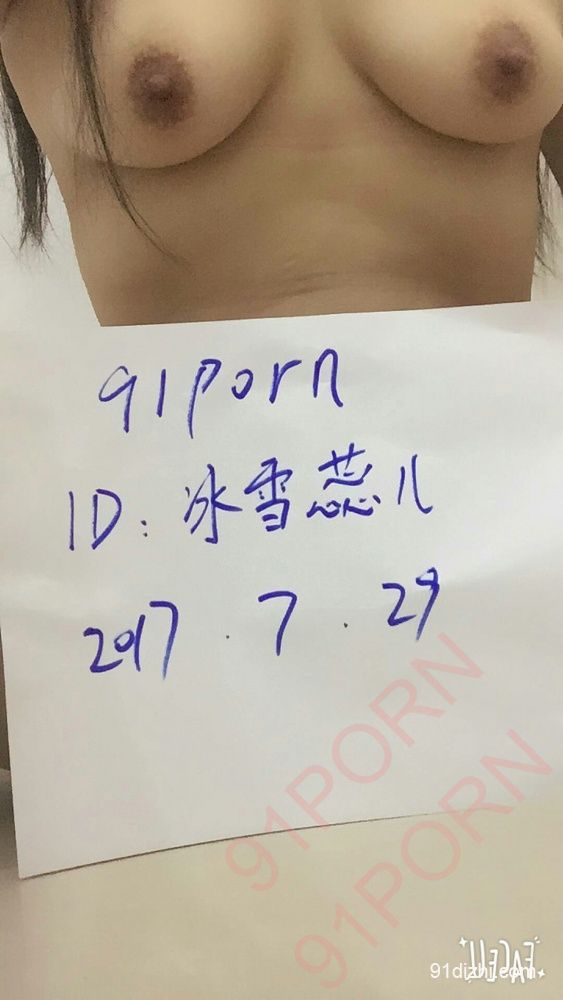 91porn
ID: 冰雪蕊儿
2017.7.29
91PORN
91PORN
91dizhi.com